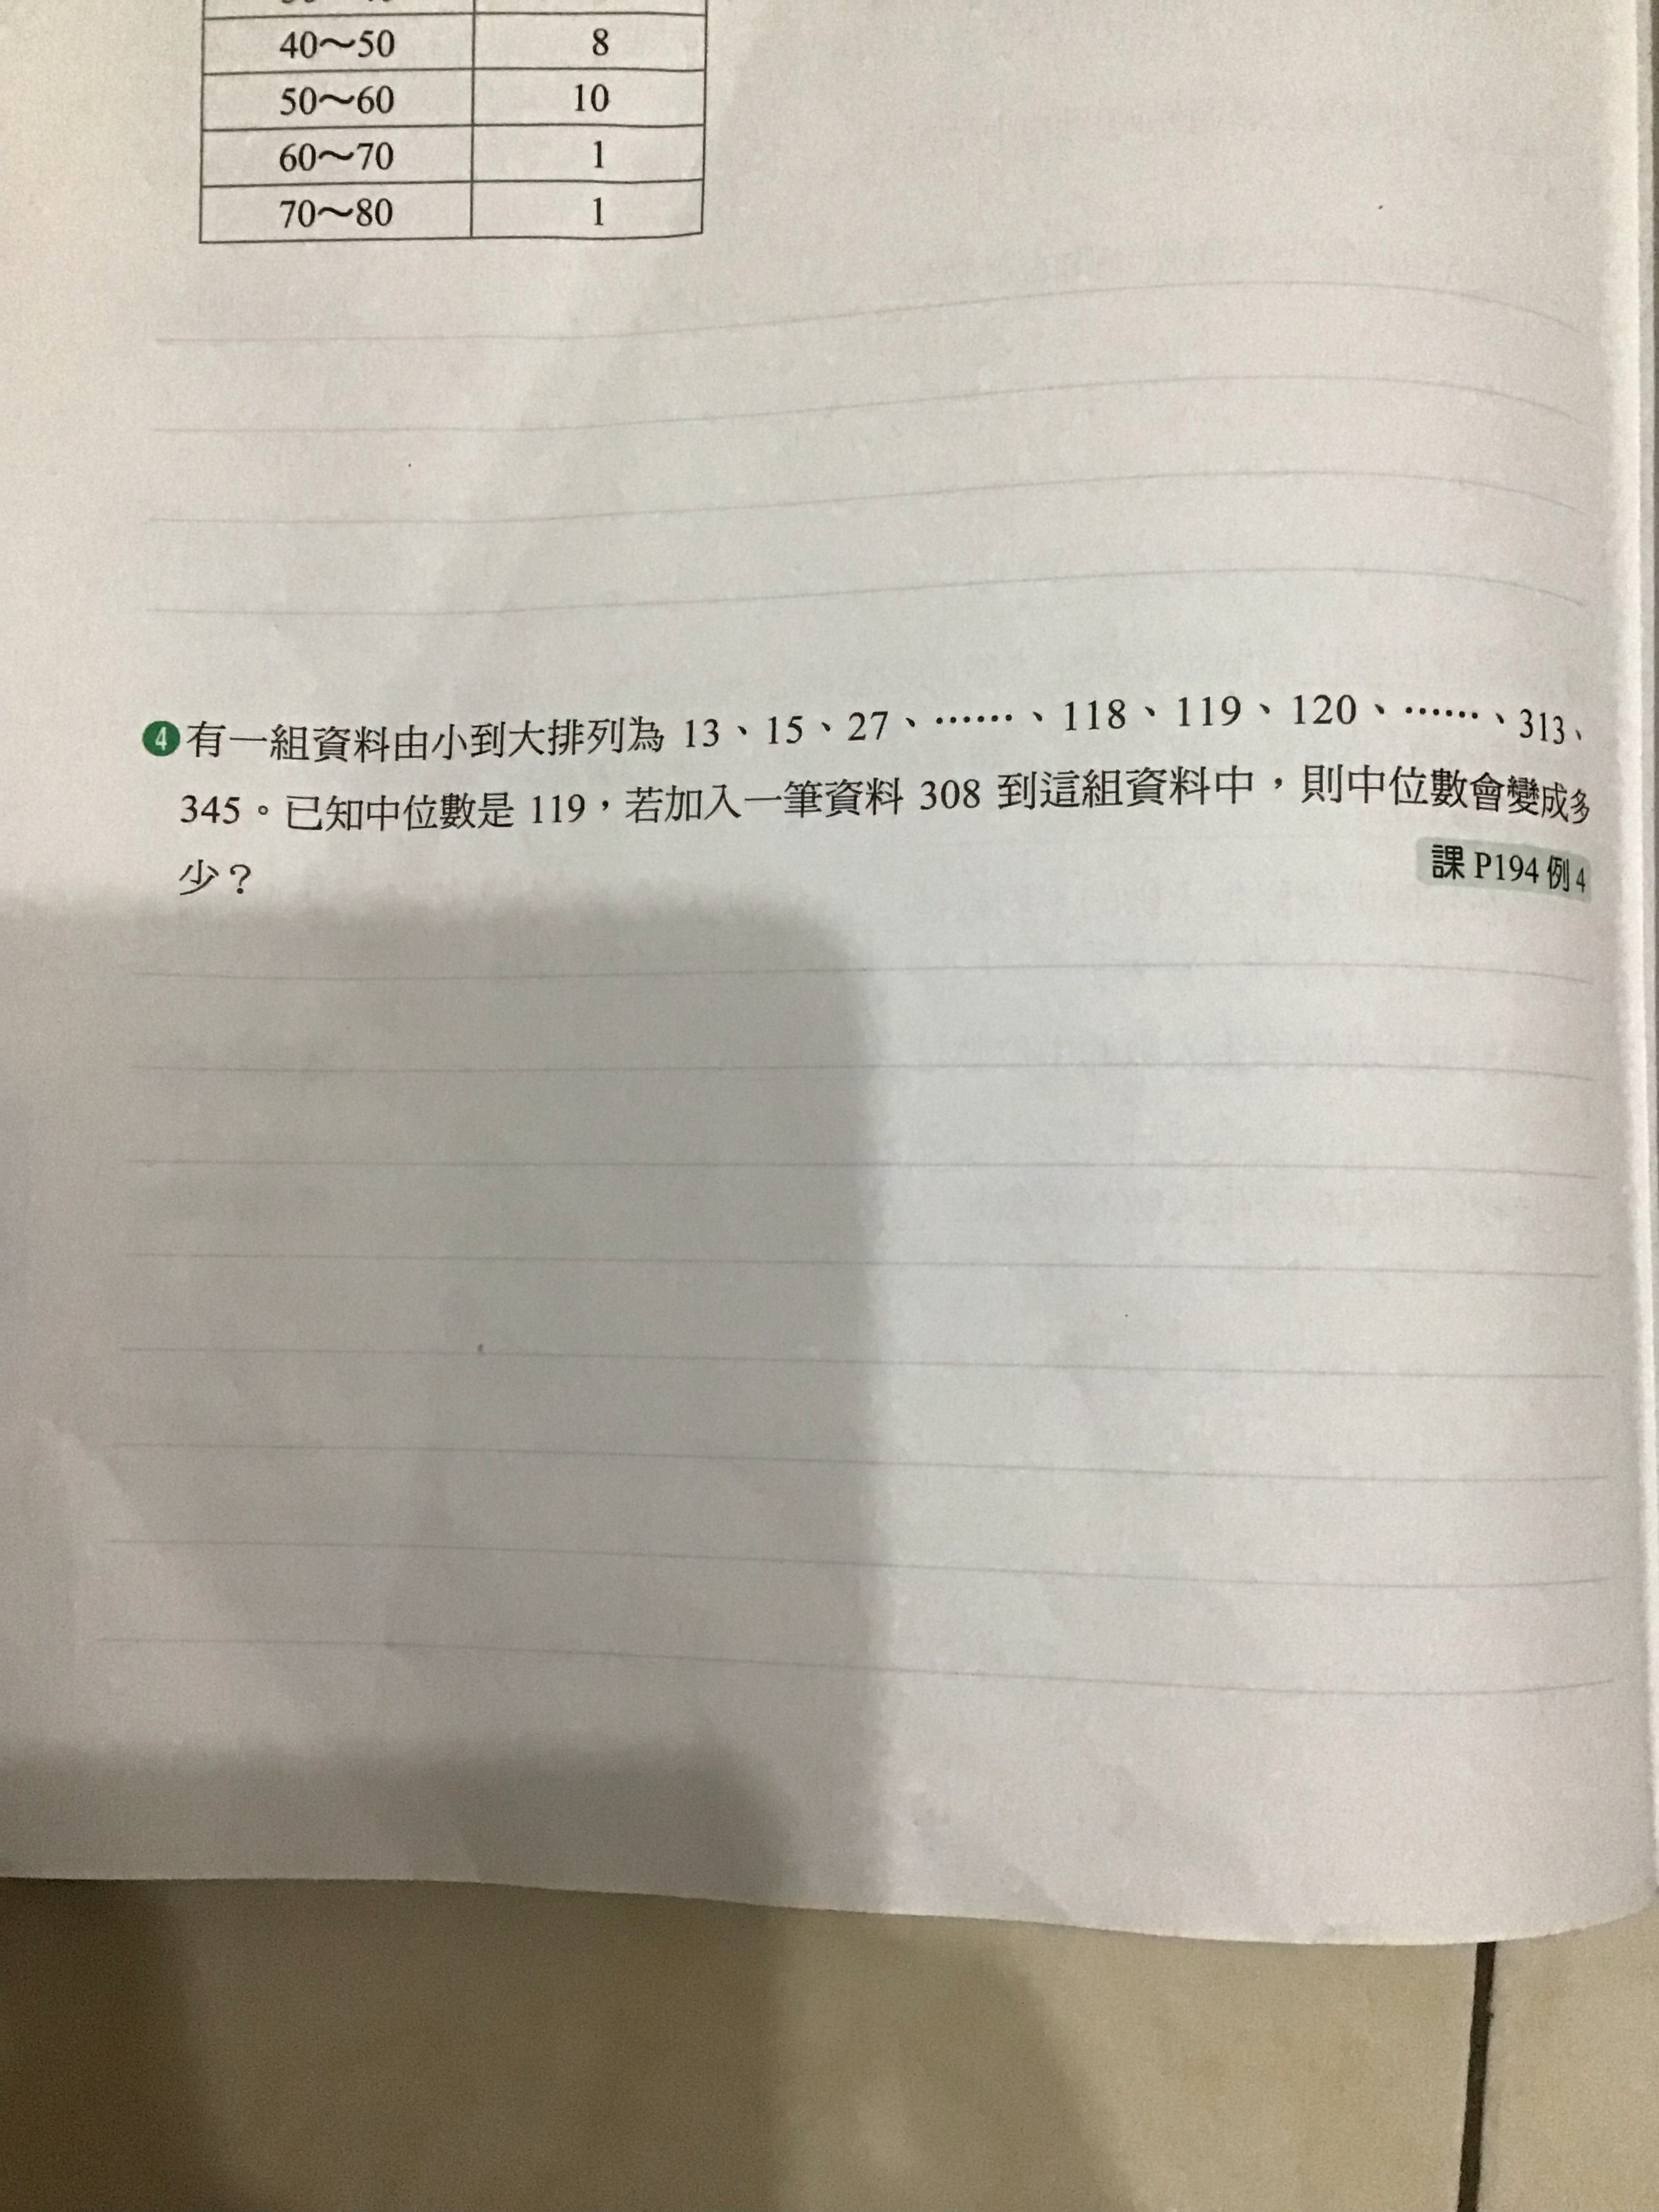 40～50 8
50～60 10
60～70 1
70～80 1
4 有一組資料由小到大排列為 13、15、27、……、118、119、120、……、313、
345。已知中位數是 119，若加入一筆資料 308 到這組資料中，則中位數會變成多
少？
課 P194 例 4